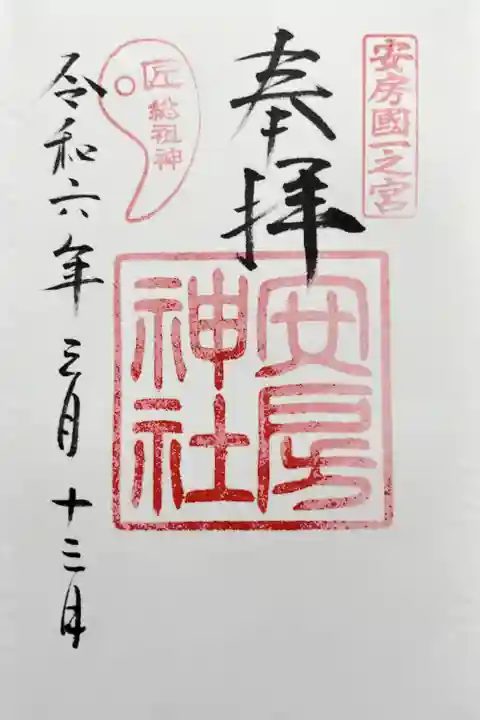 安房國一之宮
奉拝
安房
神社
匠
総祖神
令和六年 三月 十三日